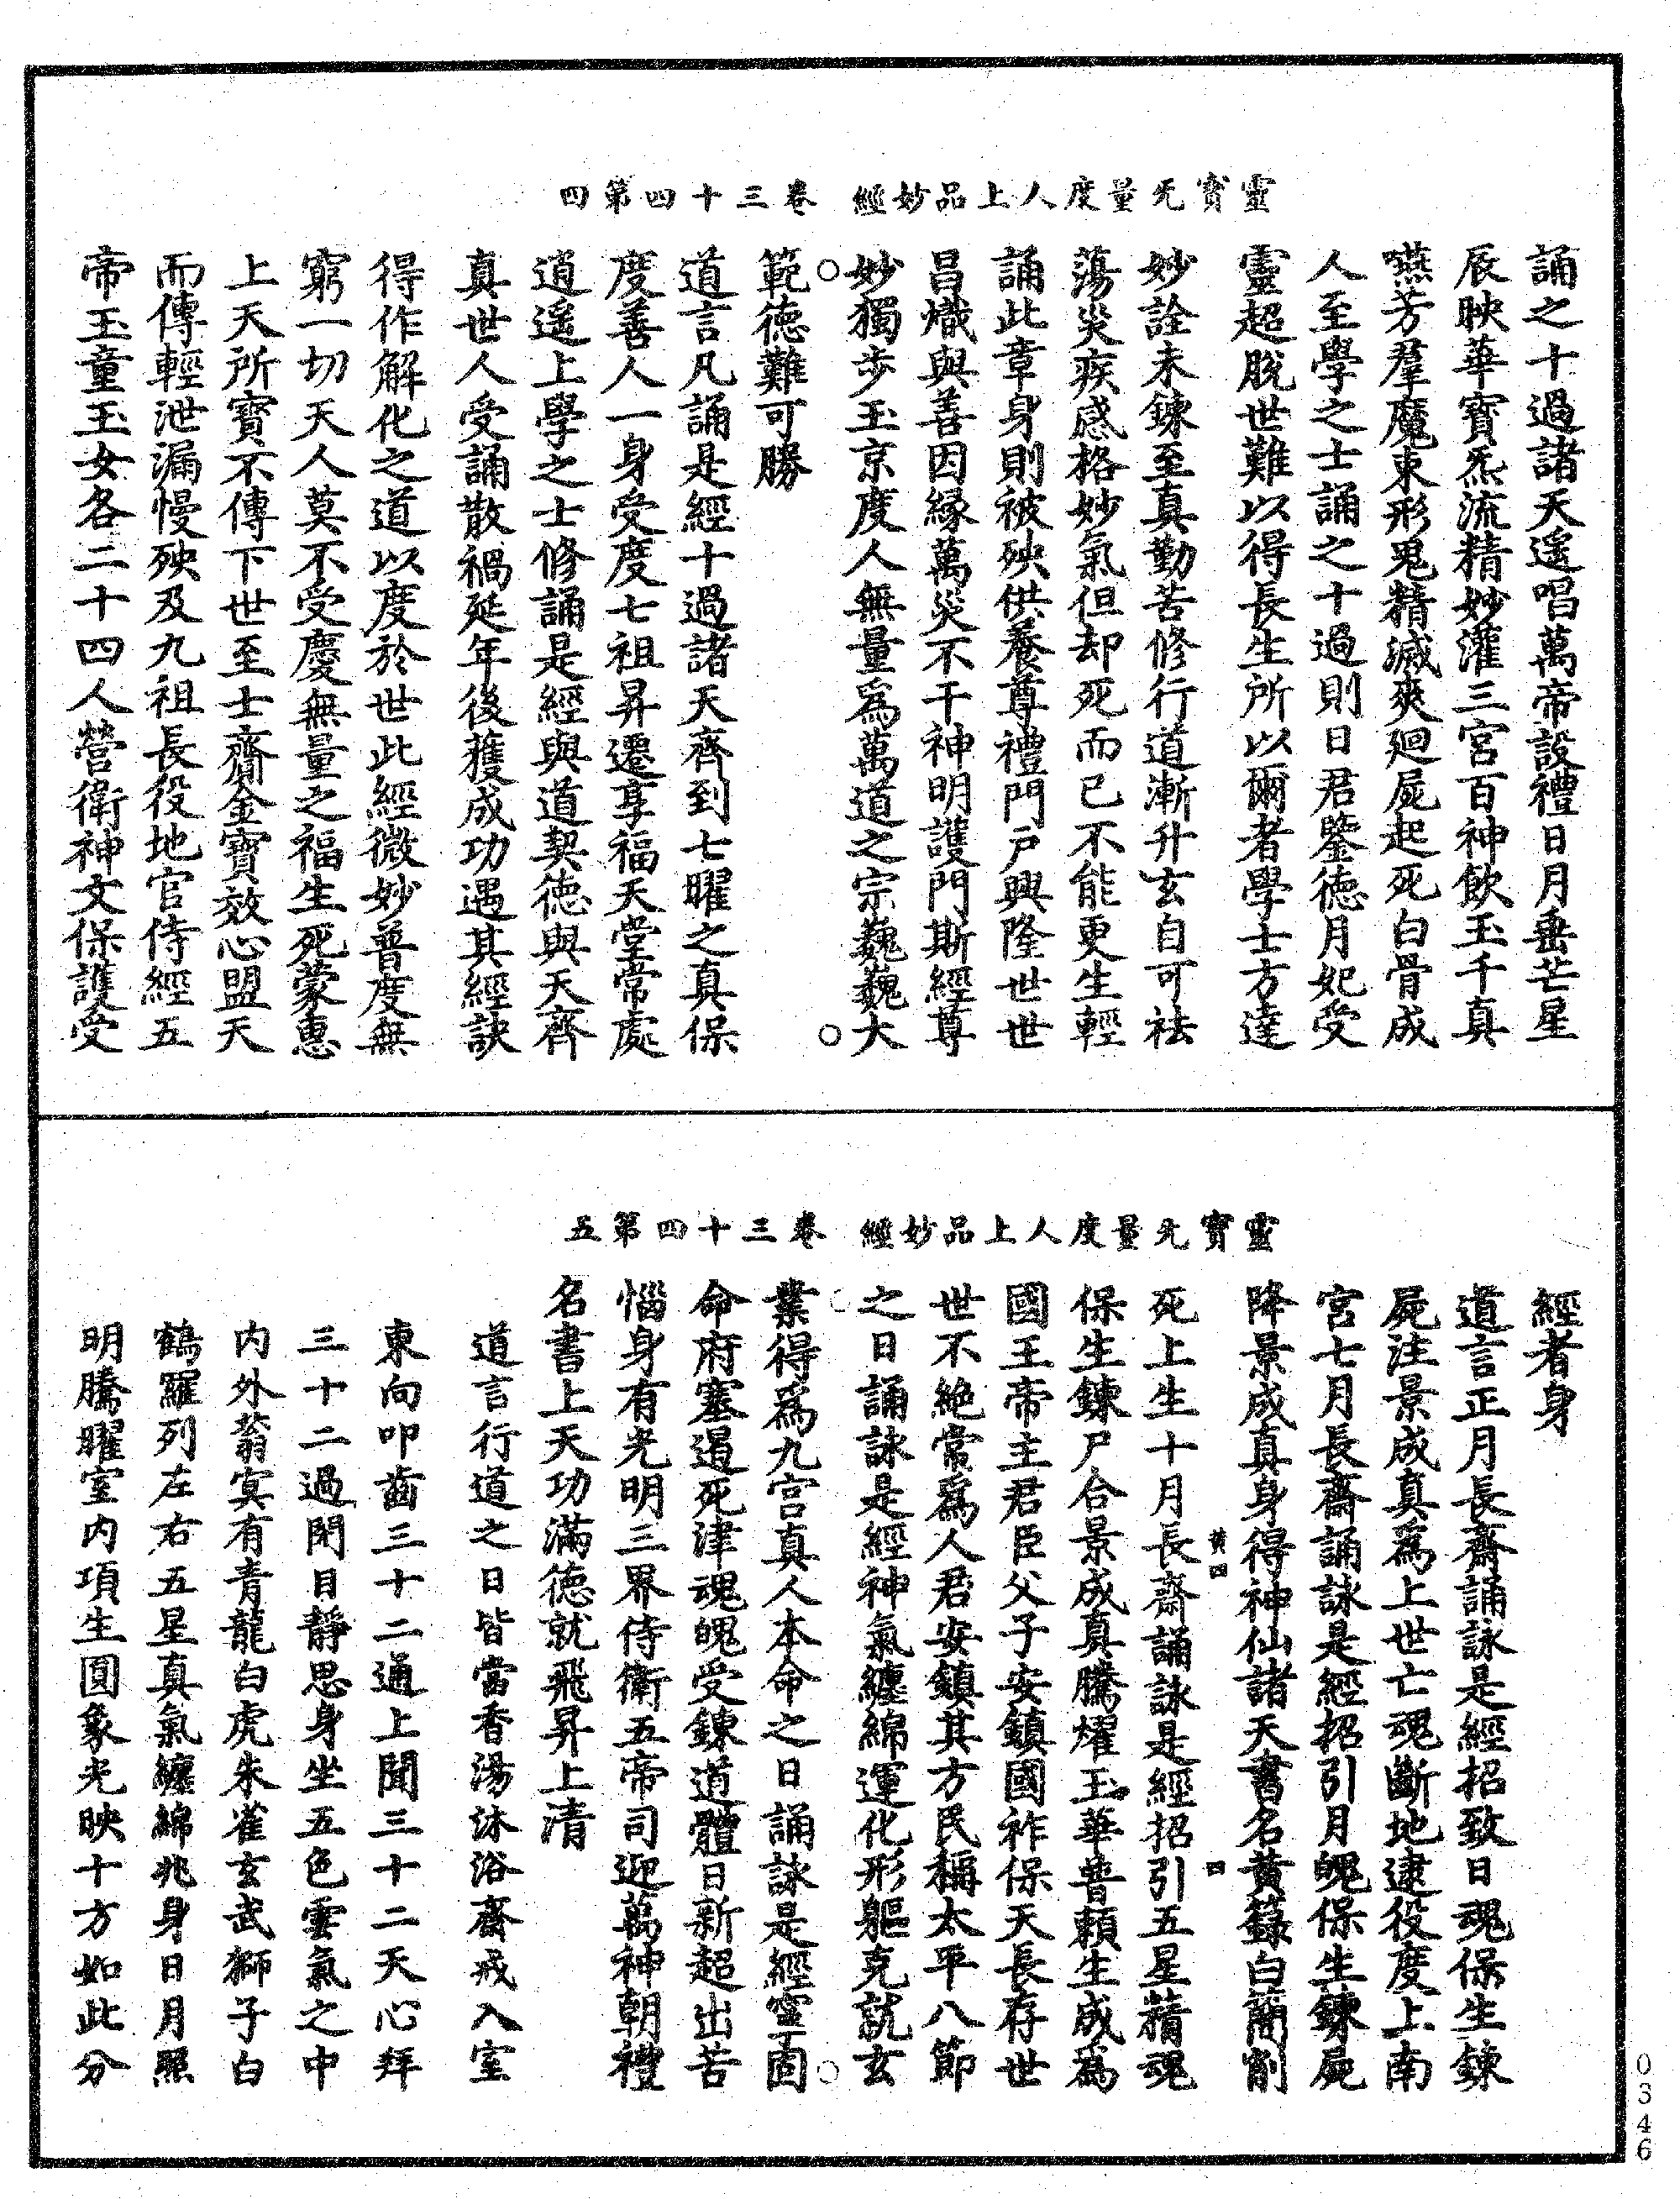 靈寳无量度人上品妙經　卷三十四第四
誦之十過諸天遥唱萬帝設禮日月垂芒星
辰映華寳炁流精妙灌三宮百神飲玉千真
嚥芳羣魔束形鬼精滅爽廻屍起死白骨成
人至學之士誦之十過則日君鑒德月妃受
靈超脫世難以得長生所以爾者學士方達
妙詮未鍊至真勤苦修行道漸升玄自可祛
蕩災疾感格妙氣但却死而已不能更生輕
誦此章身則被殃供養尊禮門户興隆世世
昌熾與善因緣萬災不干神明護門斯經尊
妙獨步玉京度人無量爲萬道之宗巍巍大
範德難可勝
道言凡誦是經十過諸天齊到七曜之真保
度善人一身受度七祖昇遷享福天堂常處
逍遥上學之士修誦是經與道契德與天齊
真世人受誦散禍延年後獲成功遇其經訣
得作解化之道以度於世此經微妙普度無
窮一切天人莫不受慶無量之福生死蒙惠
上天所寳不傳下世至士齎金寳效心盟天
而傳輕泄漏慢殃及九祖長役地官侍經五
帝玉童玉女各二十四人營衛神文保護受
靈寳无量度人上品妙經　卷三十四第五
經者身
道言正月長齋誦詠是經招致日魂保生鍊
屍注景成真爲上世亡魂斷地逮役度上南
宮七月長齋誦詠是經招引月魄保生鍊屍
降景成真身得神仙諸天書名黄籙白簡削
死上生十月長齋誦詠是經招引五星精魂
黄四
四
保生鍊尸合景成真騰燿玉華普賴生成爲
國王帝主君臣父子安鎮國祚保天長存世
世不絶常爲人君安鎮其方民稱太平八節
之日誦詠是經神氣纏綿運化形軀克就玄
業得爲九宮真人本命之日誦詠是經靈固
命府塞遏死津魂魄受鍊道體日新超出苦
惱身有光明三界侍衛五帝司迎萬神朝禮
名書上天功滿德就飛昇上清
道言行道之日皆當香湯沐浴齋戒入室
東向叩齒三十二通上聞三十二天心拜
三十二過閉目靜思身坐五色雲氣之中
内外蓊㝠有青龍白虎朱雀玄武獅子白
鶴羅列左右五星真氣纏綿兆身日月照
明騰曜室内項生圓象光映十方如此分
0346